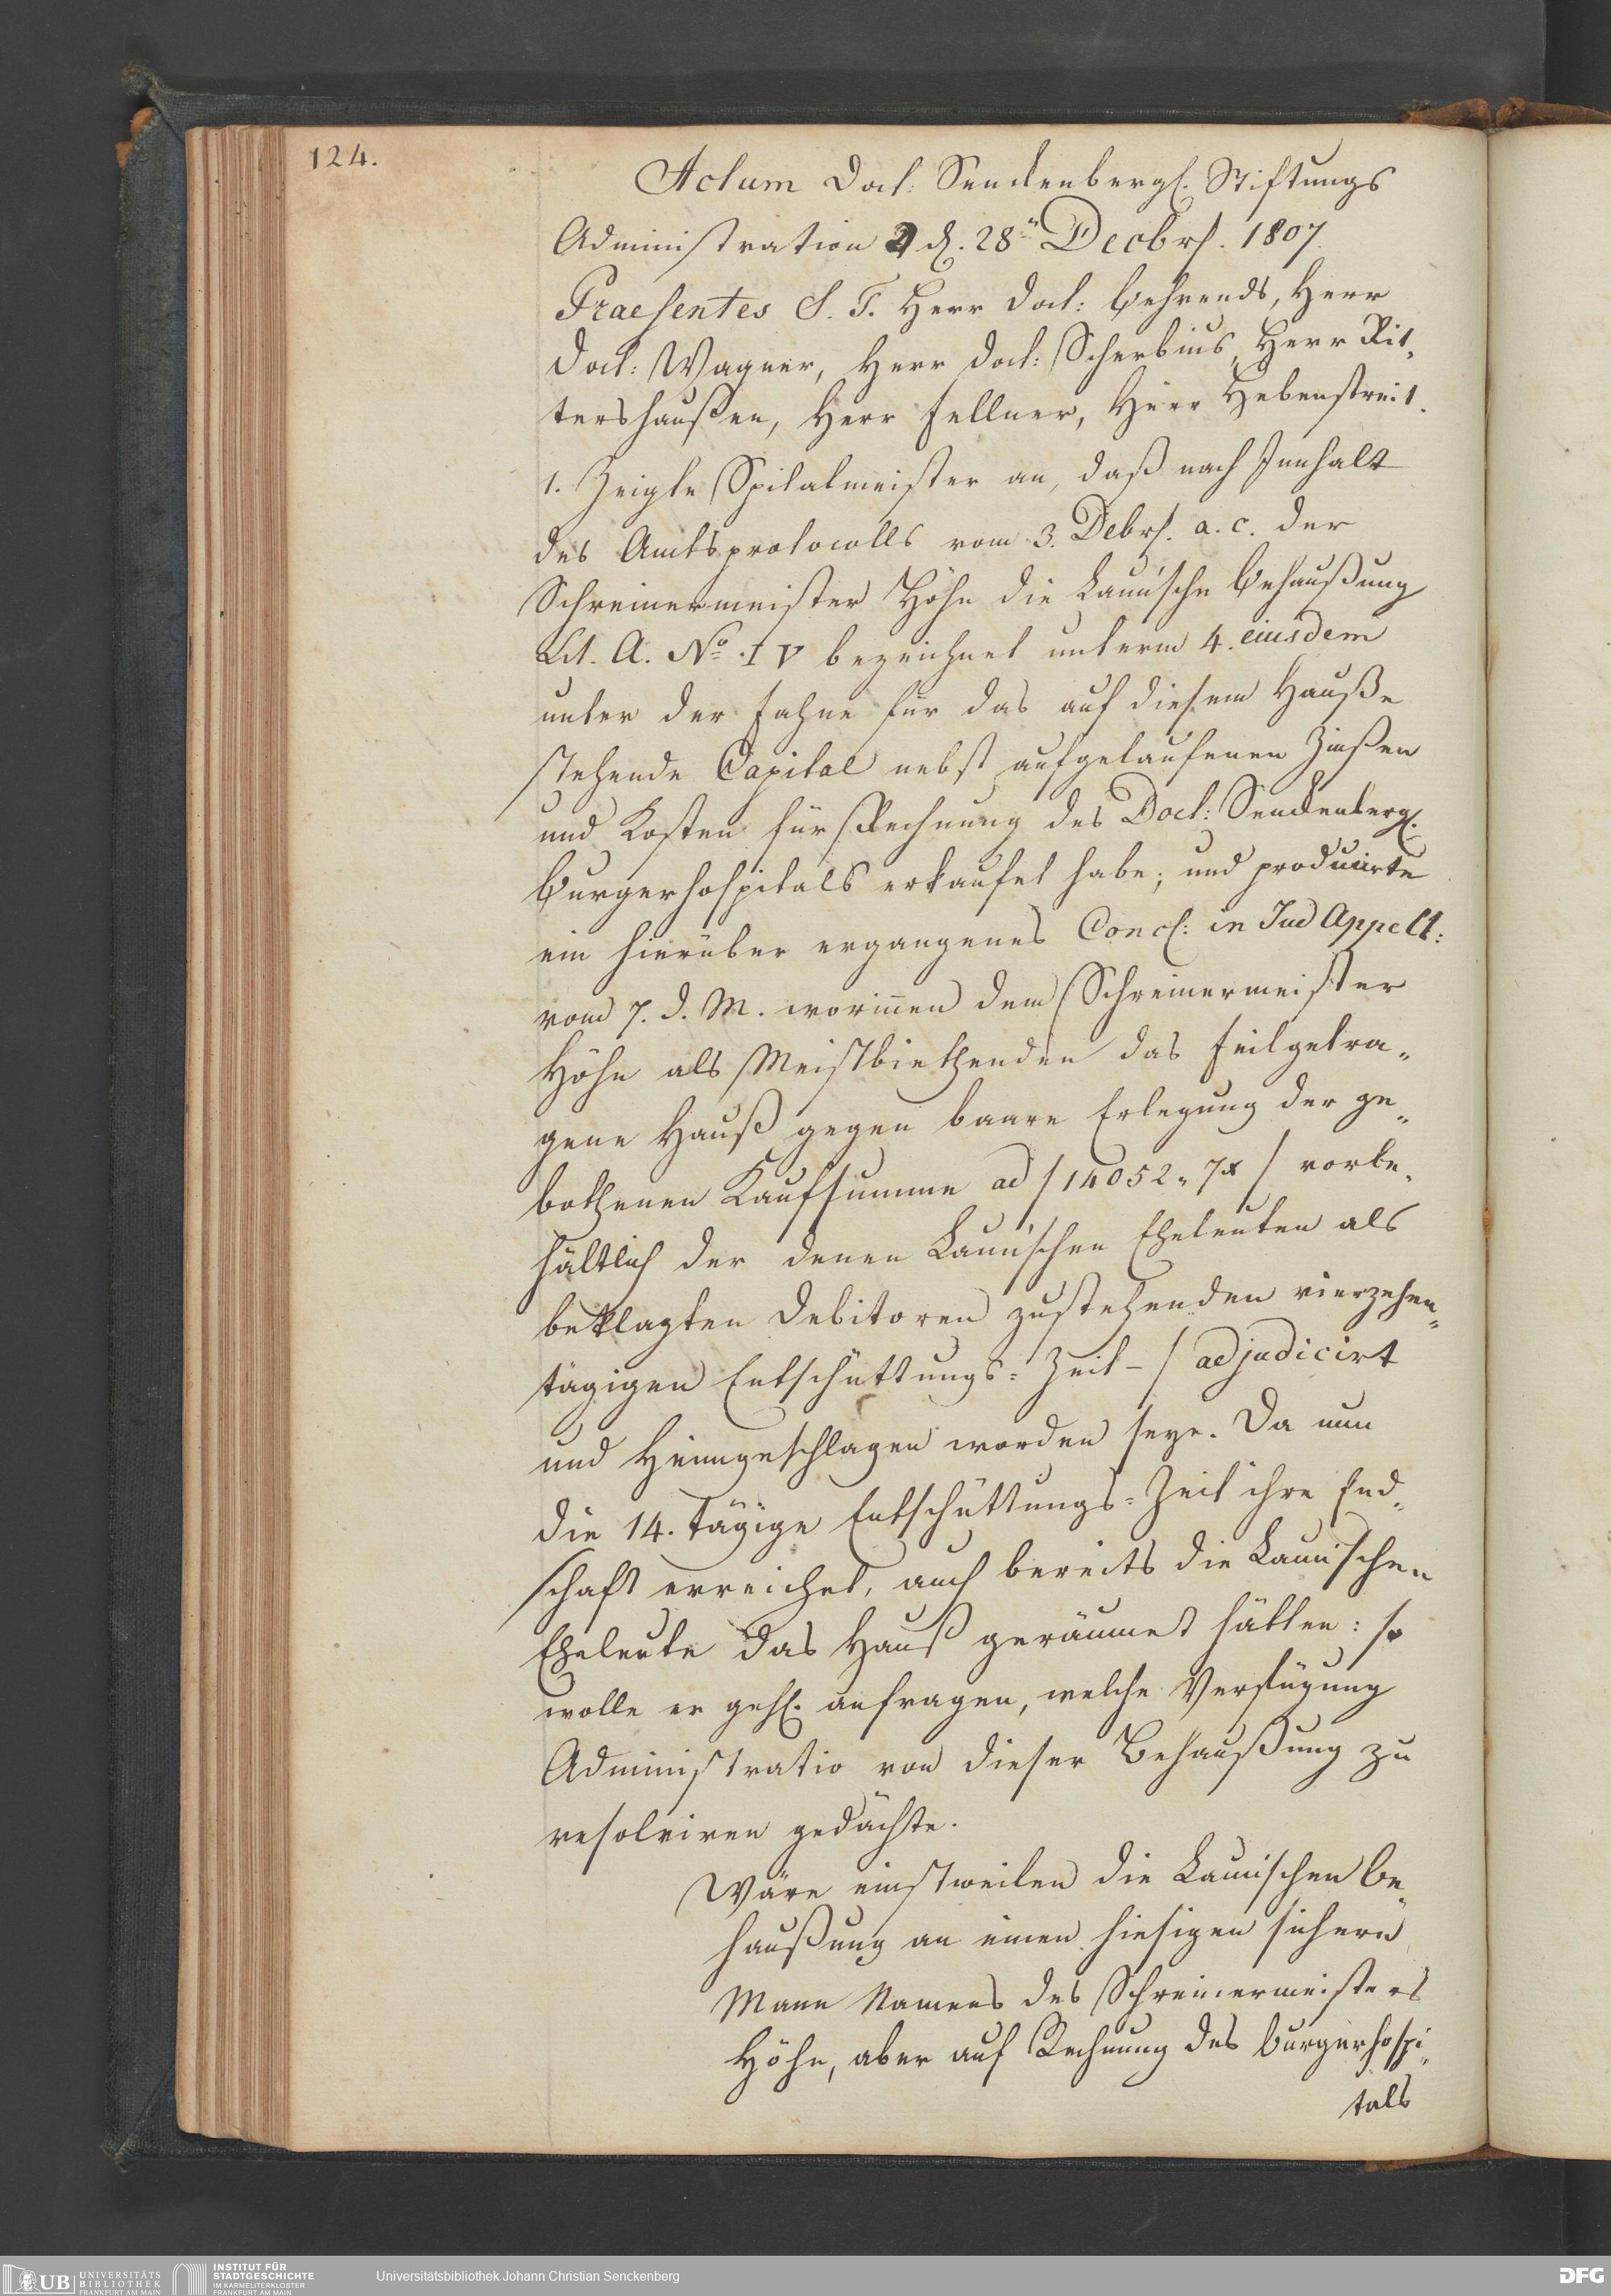 124.
Actum Doct: Senckenbergl. Stiftungs
Administration d. 28n Decbrs. 1807.
Praesentes S. T. Herr Doct: Behrends, Herr
Doct: Wagner, Herr Doct: Scherbius, Herr Rit„
tershaußen, Herr Fellner, Herr Hebenstreit.
1. Zeigte Spitalmeister an, daß nach Innhalt
des Amtsprotocolls vom 3. Debrs. a. c. der
Schreinermeister Höhn die Laun'sche Behaußung
Lit. A. No. IV bezeichnet unterm 4. eiusdem
unter der Fahne für das auf diesem Hauße
stehende Capital nebst aufgelaufenen Zinßen
und Kosten für Rechnung des Doct: Senckenbergl.
Burgerhospitals erkaufet habe; und producirte
ein hierüber ergangenes Concl: in Jud Appell:
vom 7. d. M. worinnen dem Schreinermeister
Höhn als Meistbiethenden das feilgetra„
gene Hauß gegen baare Erlegung der ge„
bothenen Kaufsumme ad f 14052„ 7x / vorbe„
hältlich der denen Laun'schen Eheleuten als
beklagten Debitoren zustehenden vierzehen„
tägigen Entschüttungs=Zeit - / adjudicirt
und Heimgeschlagen worden seye. Da nun
die 14. tägige Entschüttungs=Zeit ihre End„
schaft erreichet, auch bereits die Launischen
Eheleute das Hauß geräumet hätten: so
wolle er gehs. anfragen, welche Verfügung
Administratio von dieser Behaußung zu
resolviren gedächte.
Wäre einstweilen die Launischen Be„
haußung an einen hiesigen sichern
Mann Namens des Schreinermeisters
Höhn, aber auf Rechnung des Burgerhospi„
tals
UB UNIVERSITÄTS
BIBLIOTHEK
FRANKFURT AM MAIN
INSTITUT FÜR
STADTGESCHICHTE
IM KARMELITERKLOSTER
FRANKFURT AM MAIN
Universitätsbibliothek Johann Christian Senckenberg
DFG